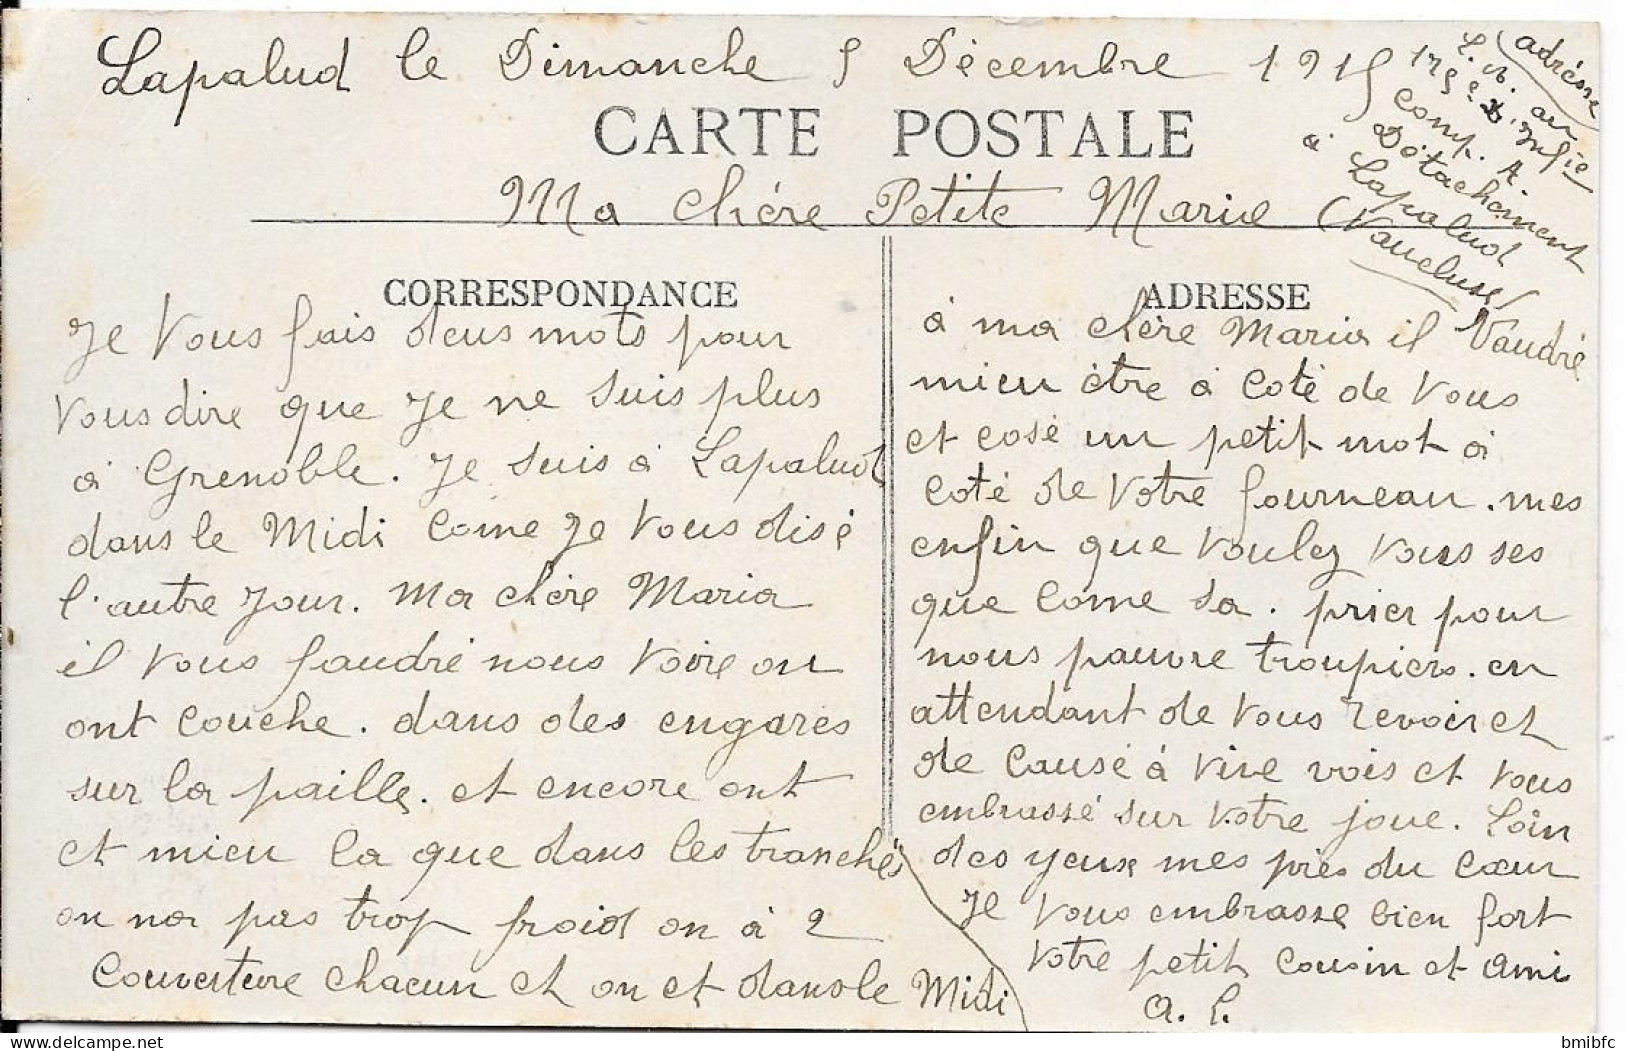 Lapalud le Dimanche 5 Décembre 1915
adrésse
L. A. au
175e Infie
Comp. A.
Détachement
à Lapalud
(Vaucluse)
CARTE POSTALE
Ma chére Petite Maria
CORRESPONDANCE
Je Vous fais deus mots pour
Vous dire que Je ne suis plus
à Grenoble. Je suis à Lapalud
dans le Midi Come Je Vous disé
l'autre Jour. Ma chére Maria
il Vous faudré nous Voire ou
ont Couche. dans des engares
sur la paille. et encore ont
et mieu la que dans les tranchés
on na pas trop froid on à 2
Couverture chacun et on et dans le Midi
ADRESSE
à ma chère Maria il Vaudré
mieu être à Coté de Vous
et cosé un petit mot à
Coté de Votre fourneau. mes
enfin que Voulez Vous ses
que Come sa. prier pour
nous pauvre troupiers. en
attendant de Vous revoir et
de Causé à Vive vois et Vous
embrassé sur Votre joue. Loin
des yeux mes près du Cœur
Je Vous embrasse bien fort
Votre petit Cousin et Ami
A. L.
bmibfc